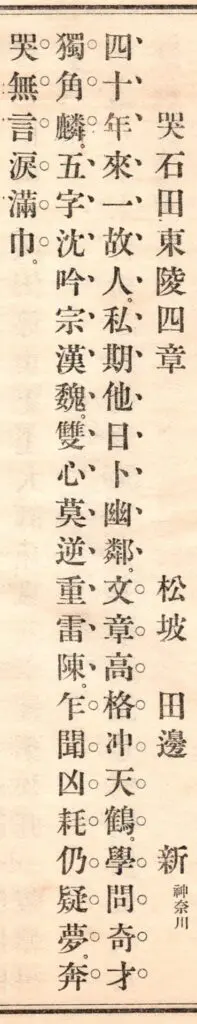 哭石田東陵四章 松坡 田邊 新 神奈川
四十年來一故人。私期他日卜幽鄰。文章高格冲天鶴。學問奇才
獨角麟。五字沈吟宗漢魏。雙心莫逆重雷陳。乍聞凶耗仍疑夢。奔
哭無言淚滿巾。